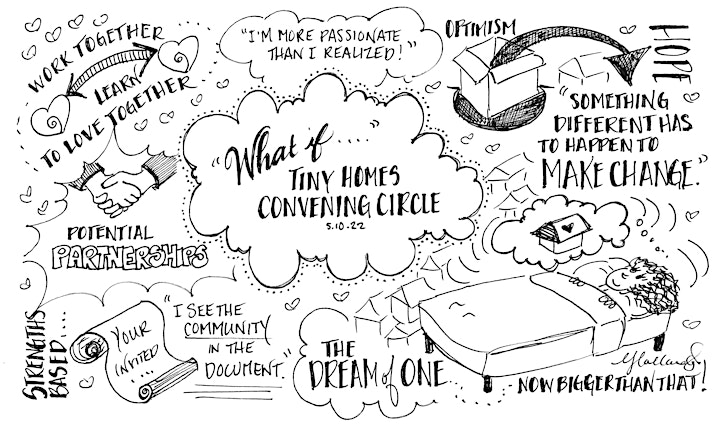 WORK TOGETHER
LEARN
TO LOVE TOGETHER
"I'M MORE PASSIONATE
THAN I REALIZED!"
OPTIMISM
HOPE
"SOMETHING
DIFFERENT HAS
TO HAPPEN TO
MAKE CHANGE."
"What if ....."
TINY HOMES
CONVENING CIRCLE
5.10.22
POTENTIAL
PARTNERSHIPS
STRENGTHS
BASED....
YOUR
INVITED
....
"I SEE THE
COMMUNITY
IN THE
DOCUMENT."
THE
DREAM of ONE
- NOW BIGGER THAN THAT!